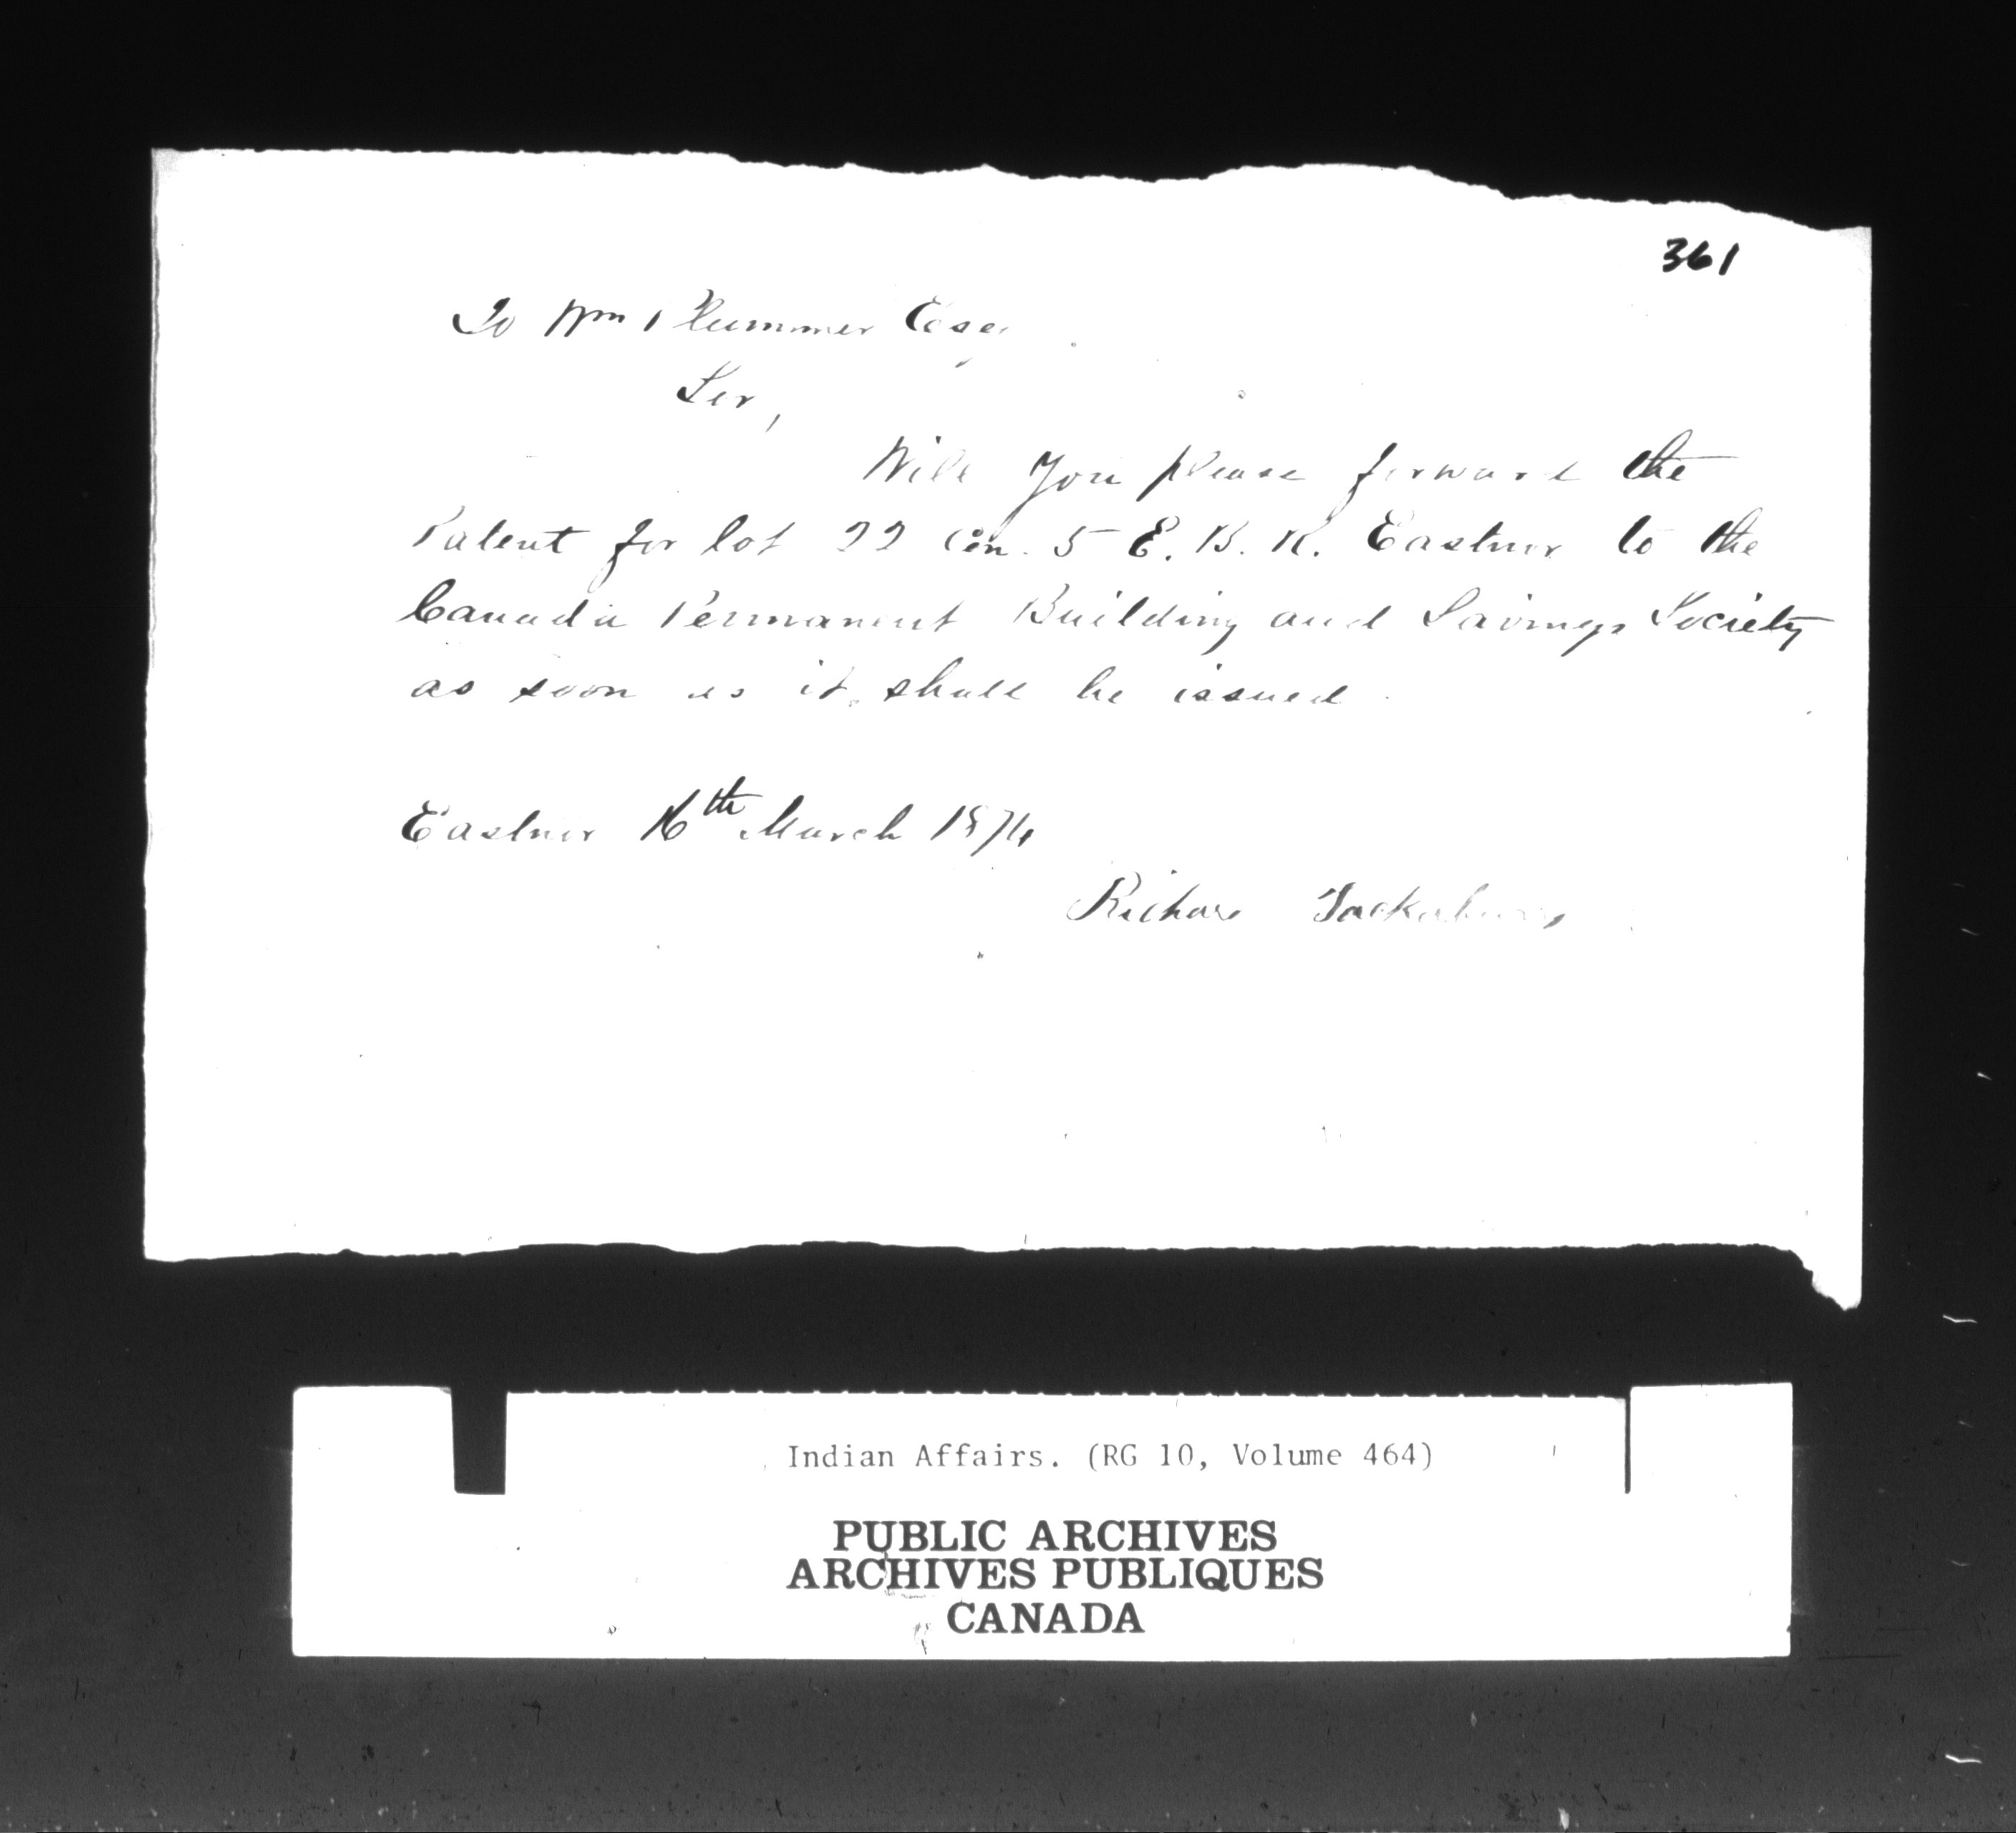 361
To Wm Plummer Esq.
Sir,
Will you please forward the
Patent for lot 22 con. 5 E. B. R. Eastnor to the
Canada Permanent Building and Savings Society
as soon as it shall be issued.
Eastnor 16th March 1874
Richard
Indian Affairs. (RG 10, Volume 464)
PUBLIC ARCHIVES
ARCHIVES PUBLIQUES
CANADA